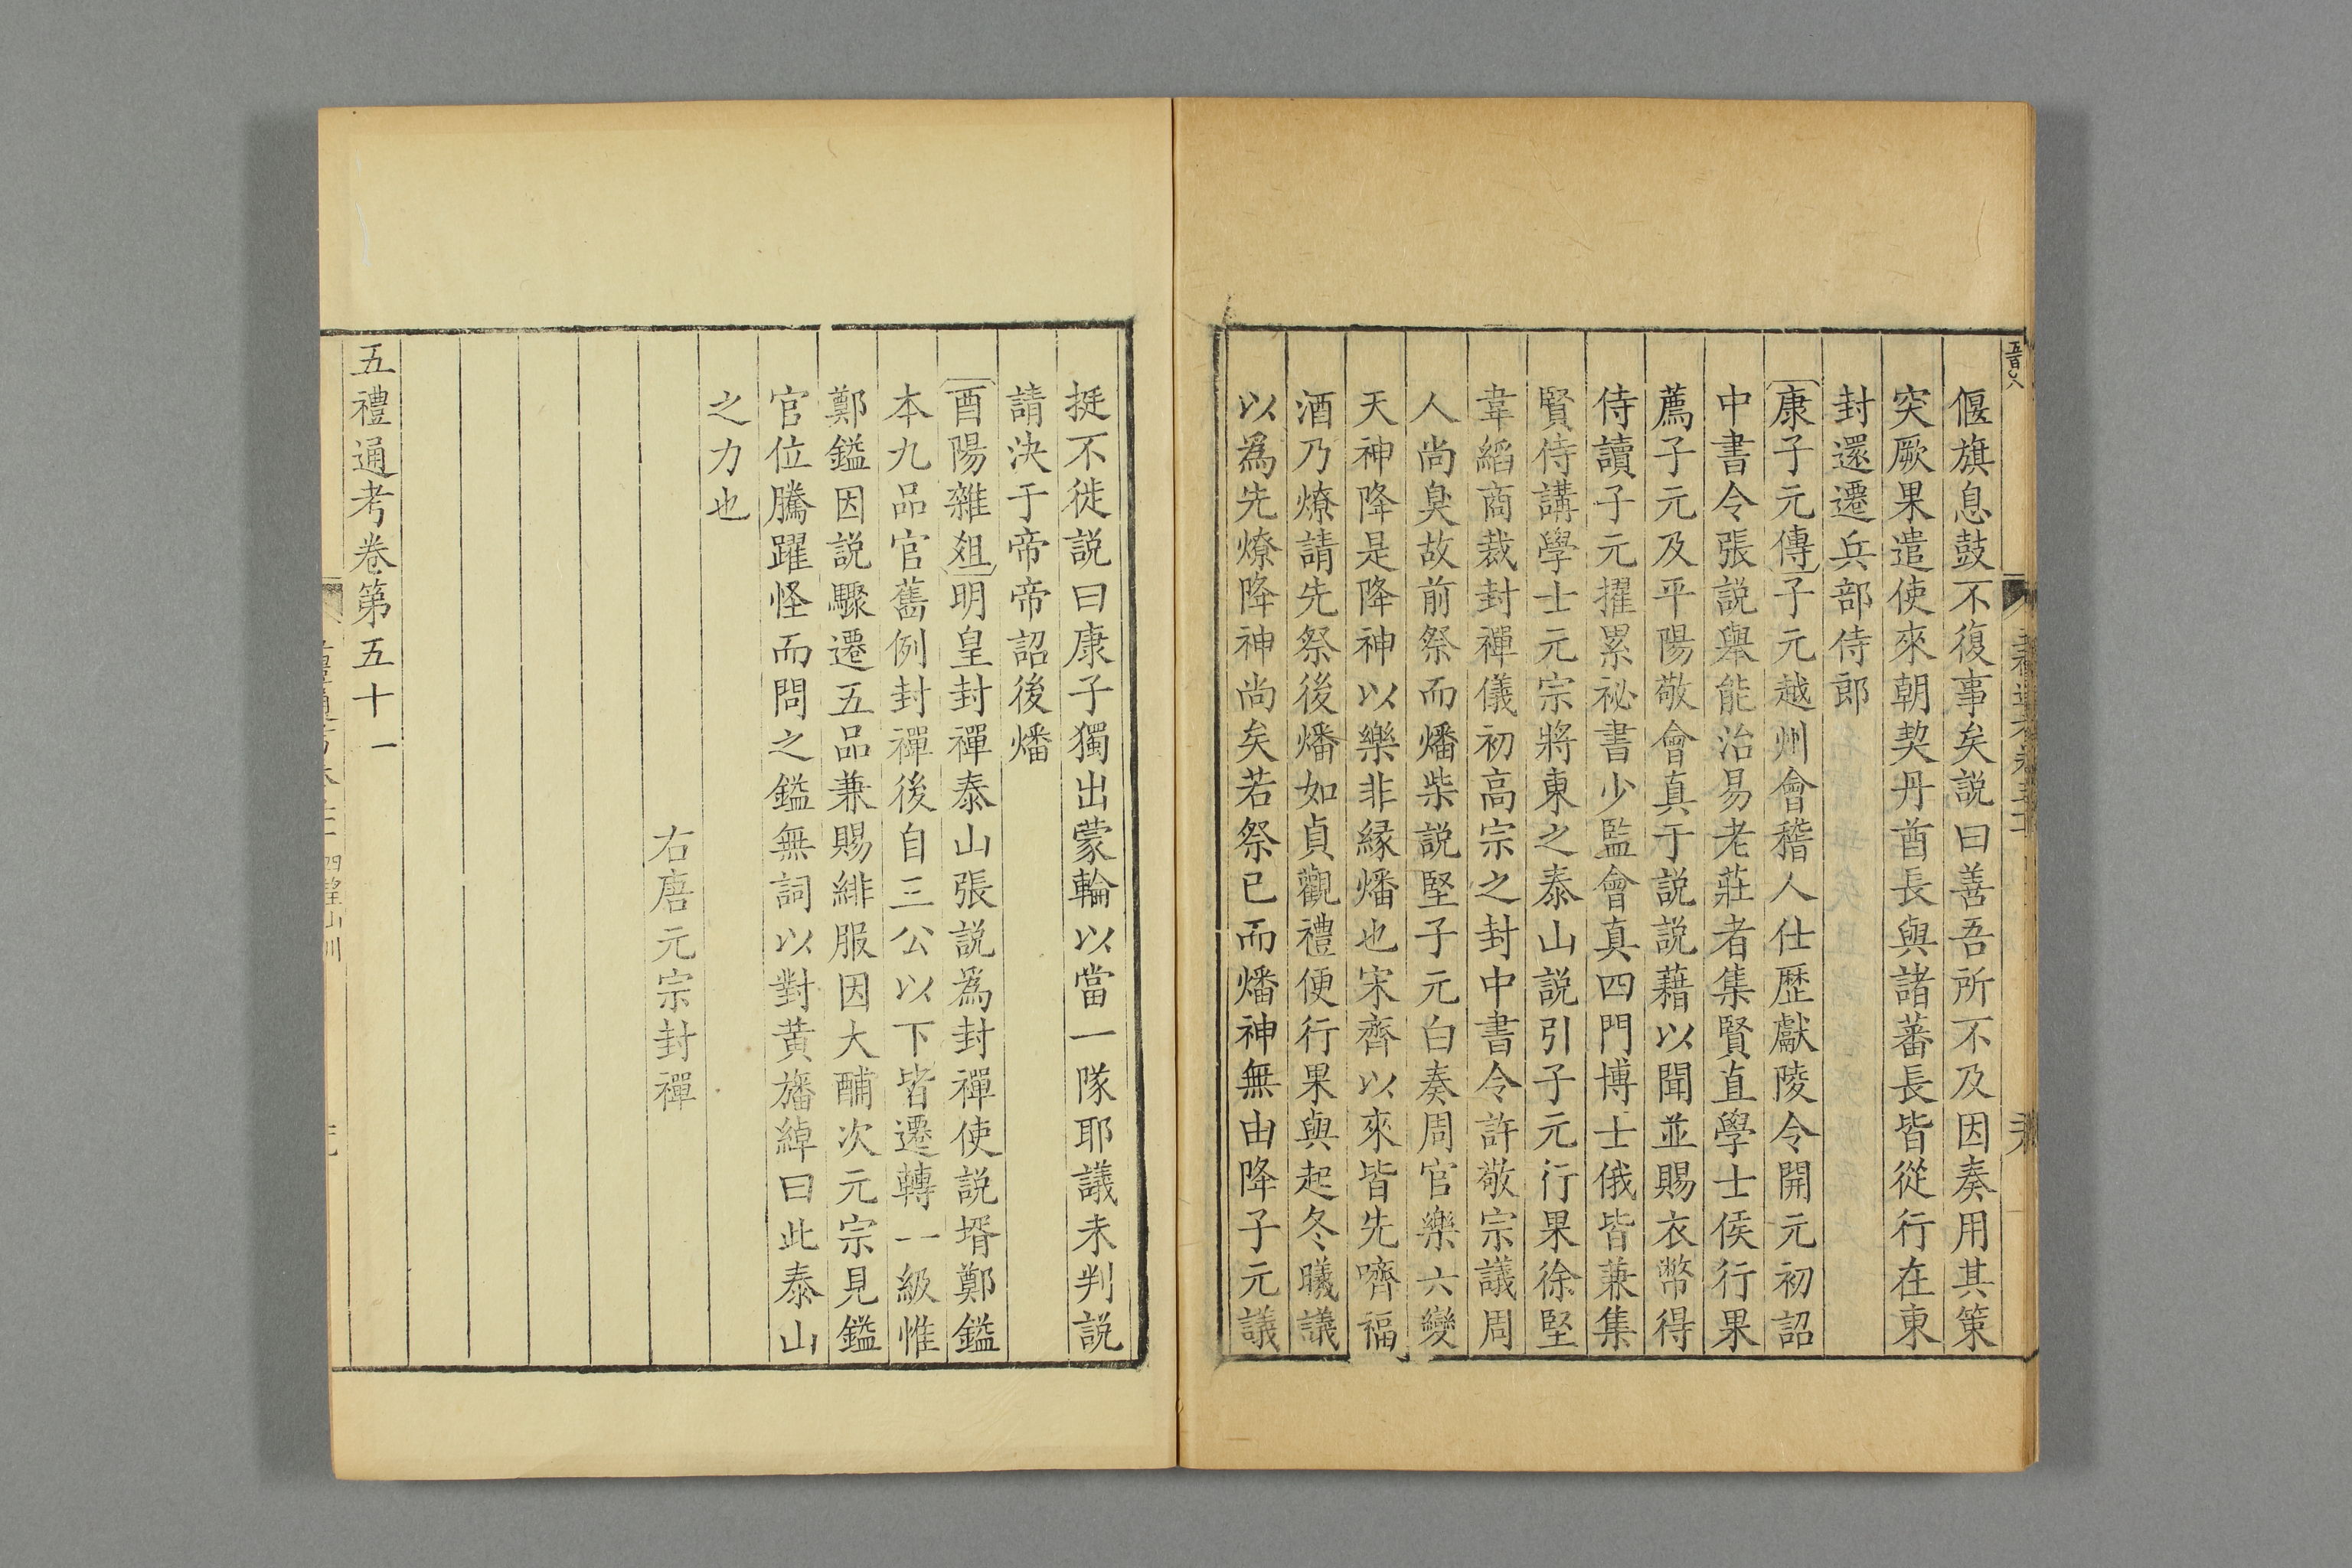 偃旗息鼓不復事矣説曰善吾所不及因奏用其策
突厥果遣使來朝契丹酋長與諸蕃長皆從行在東
封還遷兵部侍郎
康子元傳子元越州會稽人仕歴獻陵令開元初詔
中書令張説舉能治易老莊者集賢直學士侯行果
薦子元及平陽敬會真于説説藉以聞並賜衣幣得
侍讀子元擢累祕書少監會真四門博士俄皆兼集
賢侍講學士元宗將東之泰山説引子元行果徐堅
韋縚商裁封禪儀初高宗之封中書令許敬宗議周
人尚臭故前祭而燔柴説堅子元白奏周官樂六變
天神降是降神以樂非縁燔也宋齊以來皆先嚌福
酒乃燎請先祭後燔如貞觀禮便行果與起冬曦議
以爲先燎降神尚矣若祭已而燔神無由降子元議
挺不徙説曰康子獨出蒙輪以當一隊耶議未判説
請決于帝帝詔後燔
酉陽雜爼明皇封禪泰山張説爲封禪使説壻鄭鎰
本九品官舊例封禪後自三公以下皆遷轉一級惟
鄭鎰因説驟遷五品兼賜緋服因大酺次元宗見鎰
官位騰躍怪而問之鎰無詞以對黄旛綽曰此泰山
之力也
右唐元宗封禪
五禮通考卷第五十一